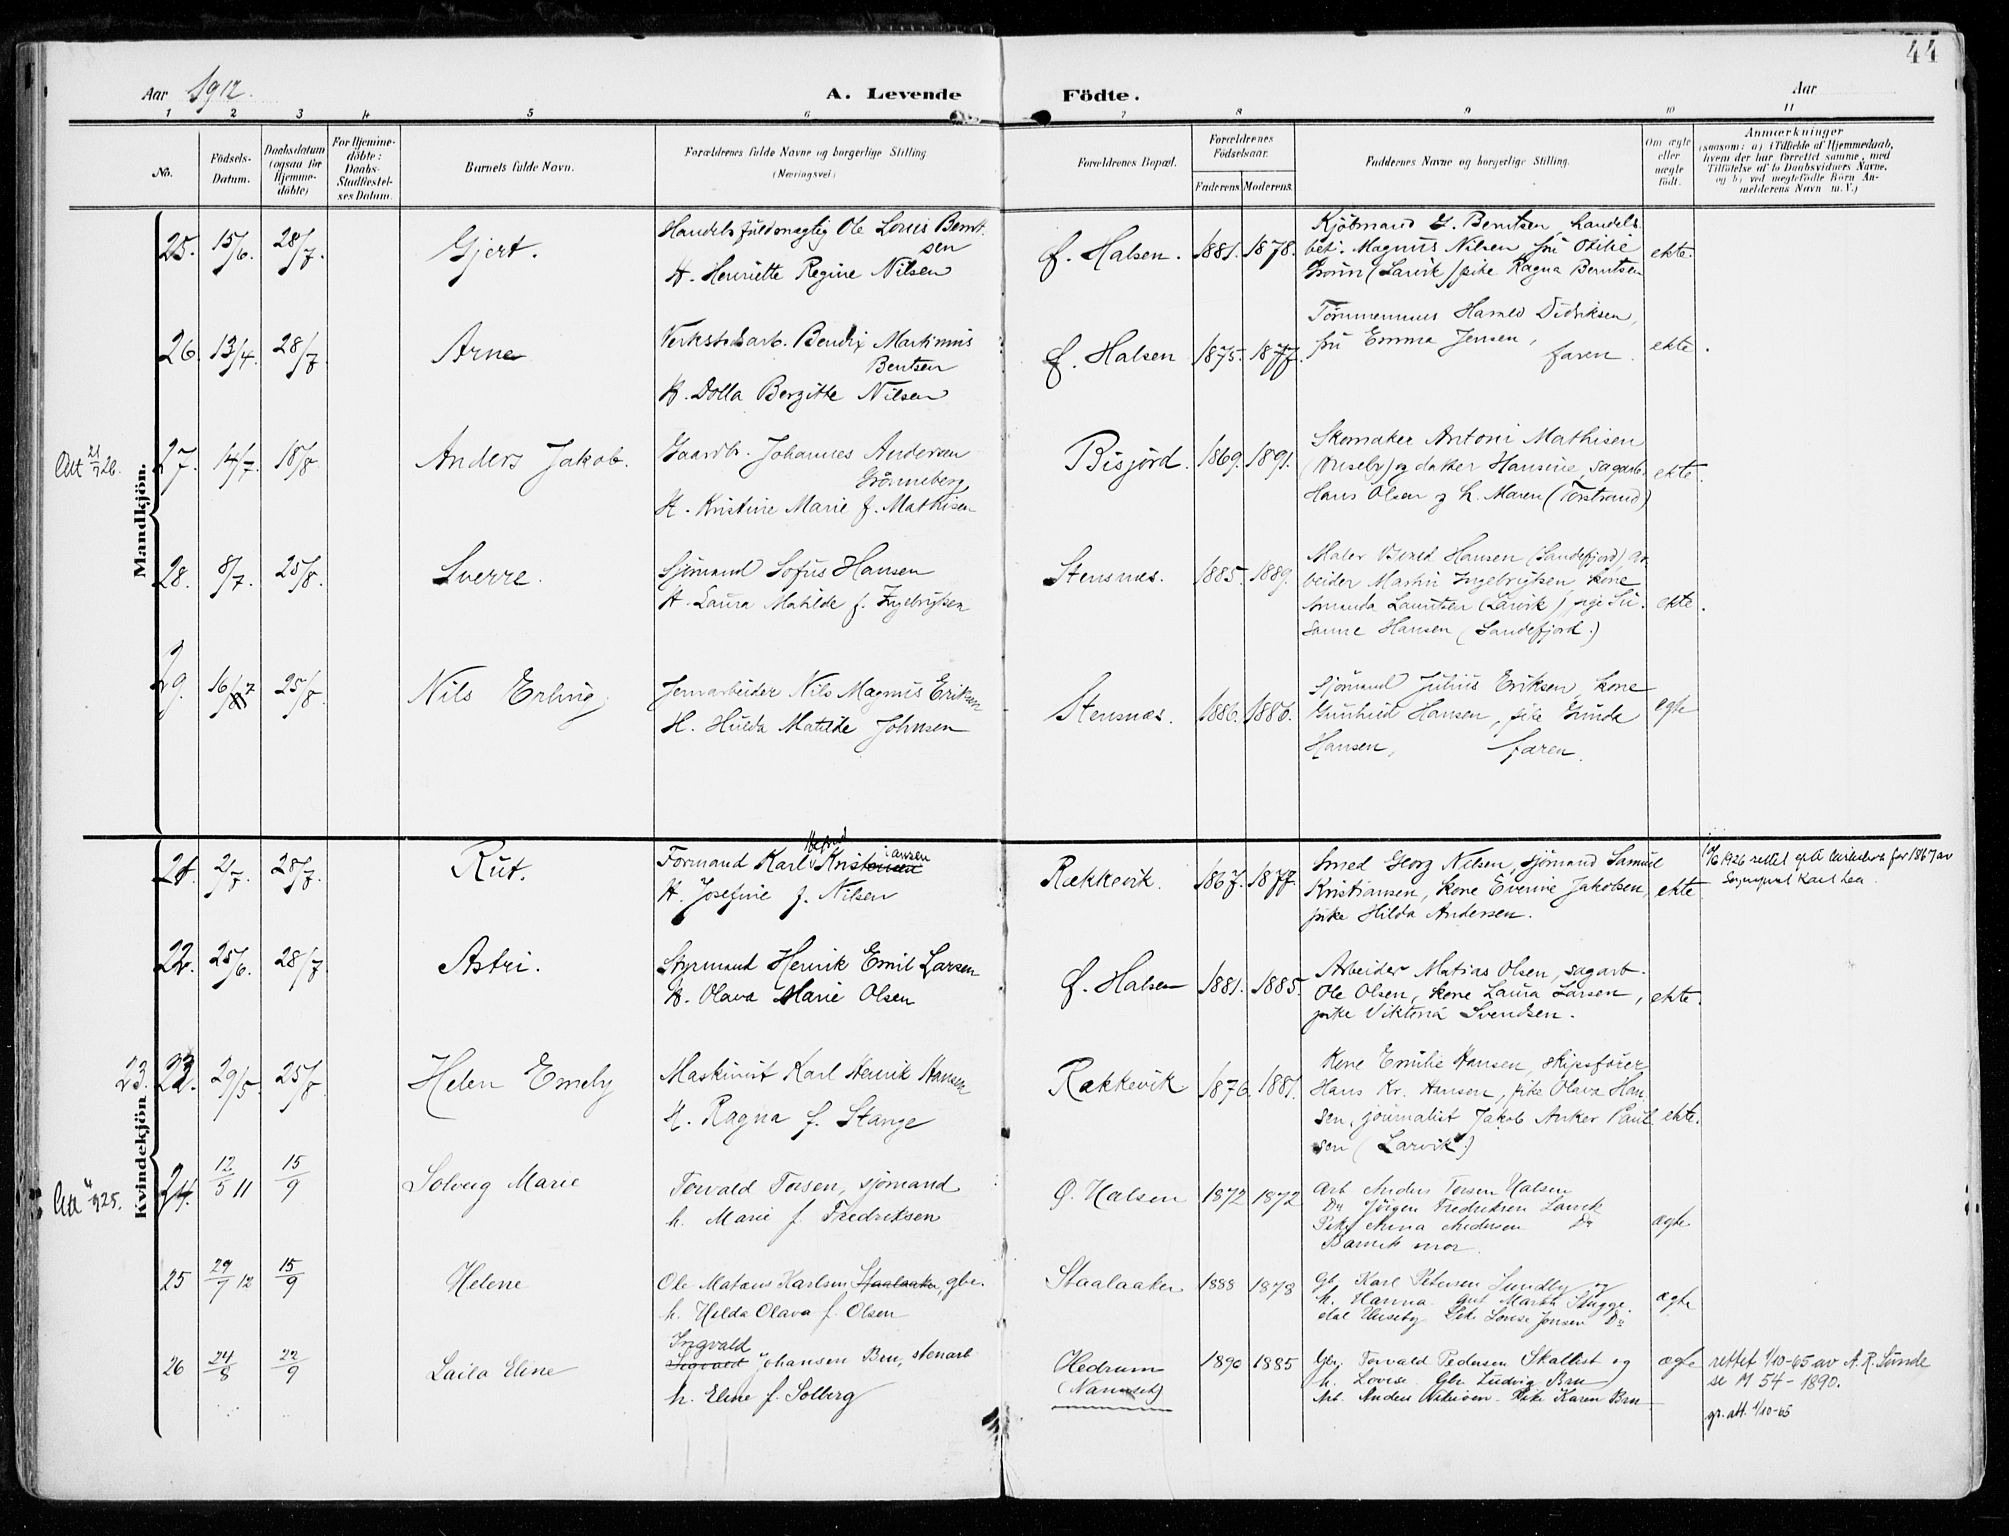 44
Aar 1912.
A. Levende
Födte.
Aar
1 2 3 4 5 6 7 8 9 10 11
No.
Födsels-
Datum.
Daabsdatum
(ogsaa for
Hjemme-
döbte)
For Hjemme-
döbte:
Daabs-
Stadfæstel-
ses Datum.
Barnets fulde Navn.
Forældrenes fulde Navne og borgerlige Stilling
(Næringsvei.)
Forældrenes Bopæl.
Forældrenes
Födselsaar.
Faderens Moderens.
Faddernes Navne og borgerlige Stilling.
Om ægte
eller
uægte
födt.
Anmærkninger
(saasom: a) i Tilfælde af Hjemmedaab,
hvem der har forrettet samme, med
Tilföielse af to Daabsvidners Navne,
og b) ved uægtefödte Börn An-
melderens Navn m. V.)
Mandkjön.
25. 15/6. 28/7. Gjert.
Handelsfuldmægtig Ole Louis Bernt
sen
H. Henriette Regine Nilsen
f. Halsen. 1881. 1878.
Kjöbmand G. Berntsen, handels
bet. Magnus Nilsen fru Otilie
(Larvik) pike Ragna Berntsen
ekte.
26. 13/4. 28/7. Arne
Verkstedsarb. Bendix Martinius
Bentsen
H. Dolla Bergitte Nilsen
f. Halsen 1875. 1877.
Tömmermus Didriksen,
fru Emma Jensen,
faren.
ekte.
Att 21/7 26.
27. 14/7. 18/8. Anders Jakob.
Gaardbr. Johannes Andersen
Grönneberg
H. Kristine Marie f. Mathisen
Bisjörd. 1869. 1891.
Skomaker Antoni Mathisen
og datter Hansine, sagarb.
Hans Olsen og h. Maren (Torstrand)
ekte.
28. 8/7. 25/8. Sverre.
Sjömand Sofus Hansen
H. Laura Matilde f. Ingebrigtsen
Stensnes. 1885. 1889.
Maler Hansen (Sandefjord), ar-
beider Martin Ingebrigtsen, kone
Amanda Lauritsen (Larvik), pige Su-
sanne Hansen (Sandefjord.)
ekte.
29. 16/7 25/8. Nils Erling,
Jernarbeider Nils Magnus Eriksen
H. Hulda Matilde Johnsen
Stensnæs. 1886. 1886.
Sjömand Julius Eriksen, kone
Gunhild Hansen, pike Gunda
Hansen, faren.
egte
Kvindekjön
21. 2/7. 28/7. Rut.
Formand Karl Kristensen iansen
H. Josefine f. Nilsen
Rækkevik. 1867. 1877.
Smed Georg Nilsen, sjömand Samuel
Kristiansen, kone Evenine Jakobsen,
pike Hilda Andersen.
ekte.
1926 rettet efter kirkebok for 1867 av
Sogneprest Karl Lea.
22. 25/6. 28/7. Astri.
Styrmand Henrik Emil Larsen
H. Olava Marie Olsen
f. Halsen 1881. 1885.
Arbeider Matias Olsen, sagarb.
Ole Olsen, kone Laura Larsen,
pike Viktoria Svendsen.
ekte.
23. 29/5. 25/8. Helen Emely
Maskinist Karl Henrik Hansen
H. Ragna f. Stange
Rækkevik 1876. 1881.
Kone Emilie Hansen, skipsförer
Hans Kr. Hansen, pike Olava Han
sen, journalist Jakob Anker Paul
sen (Larvik.)
ekte.
Att 925.
24. 12/5 11 15/9 Solveig Marie
Torvald Torsen, sjömand
h. Marie f. Fredriksen
Ø. Halsen 1872 1872
Arb Anders Torsen Halsen
Do Jörgen Fredriksen Larvik
Pike Anna Andersen Do
Barnets mor.
ægte
25 29/7 12 15/9 Helene
Ole Mataus Karlsen Staalaaker, gbr.
h. Helda Olava f. Olsen
Staalaaker 1888 1878
Gb. Karl Petersen Lundby og
h. Hanna. Martin Skugge
dal Huseby Pike Lovise Jensen Do
ægte
26 24/8 22/9 Laila Eline
Ingvald
Sigvald Johansen Bru, stenarb
h. Eline f. Solberg
Hedrum
(Nanset) 1890 1885
Gbr. Torvald Pedersen Skallist og
h. Lovise. Gbr. Ludvig Bru
Arb. Anders Andersen. Pike Karen Bru
ægte
rettet 1/10-65 av A. R. Sunde
se M 54 - 1890.
gr. att. 1/10-65